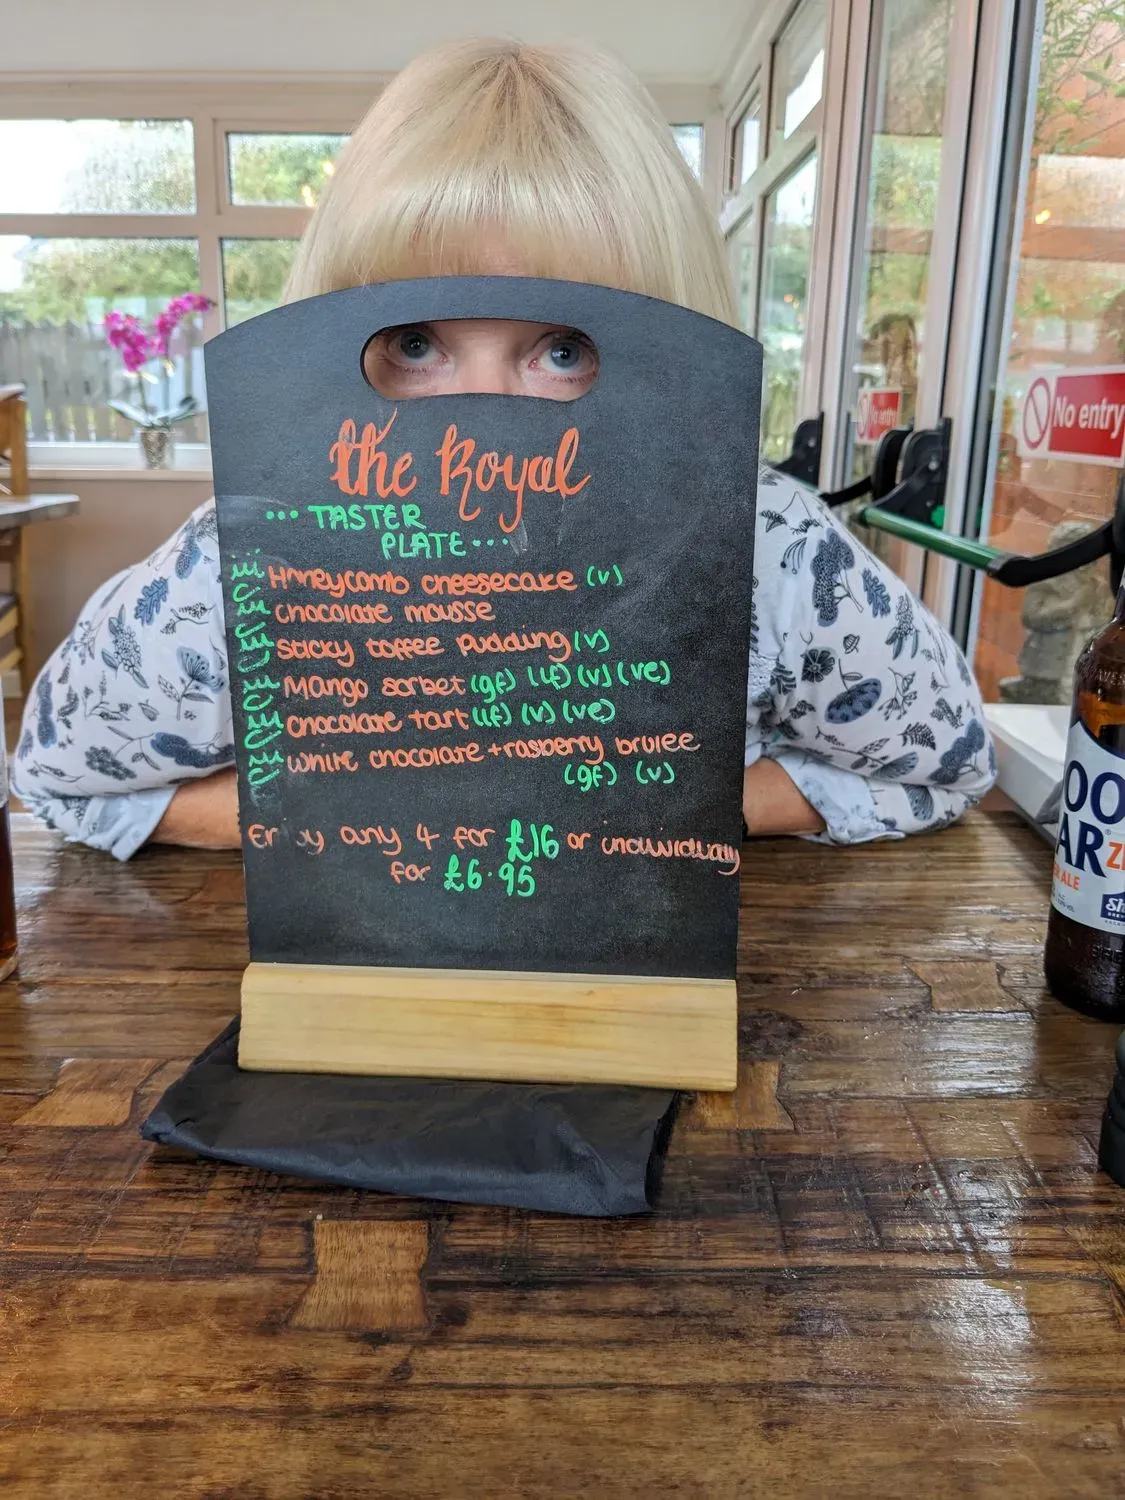 the Royal
... TASTER
PLATE ...
Honeycomb cheesecake (v)
chocolate mousse
sticky toffee pudding (v)
Mango sorbet (gf) (lf) (v) (ve)
chocolate tart (lf) (v) (ve)
white chocolate + rasberry brulee
(gf) (v)
any 4 for £16 or individualy
for £6.95
No entry
ALE